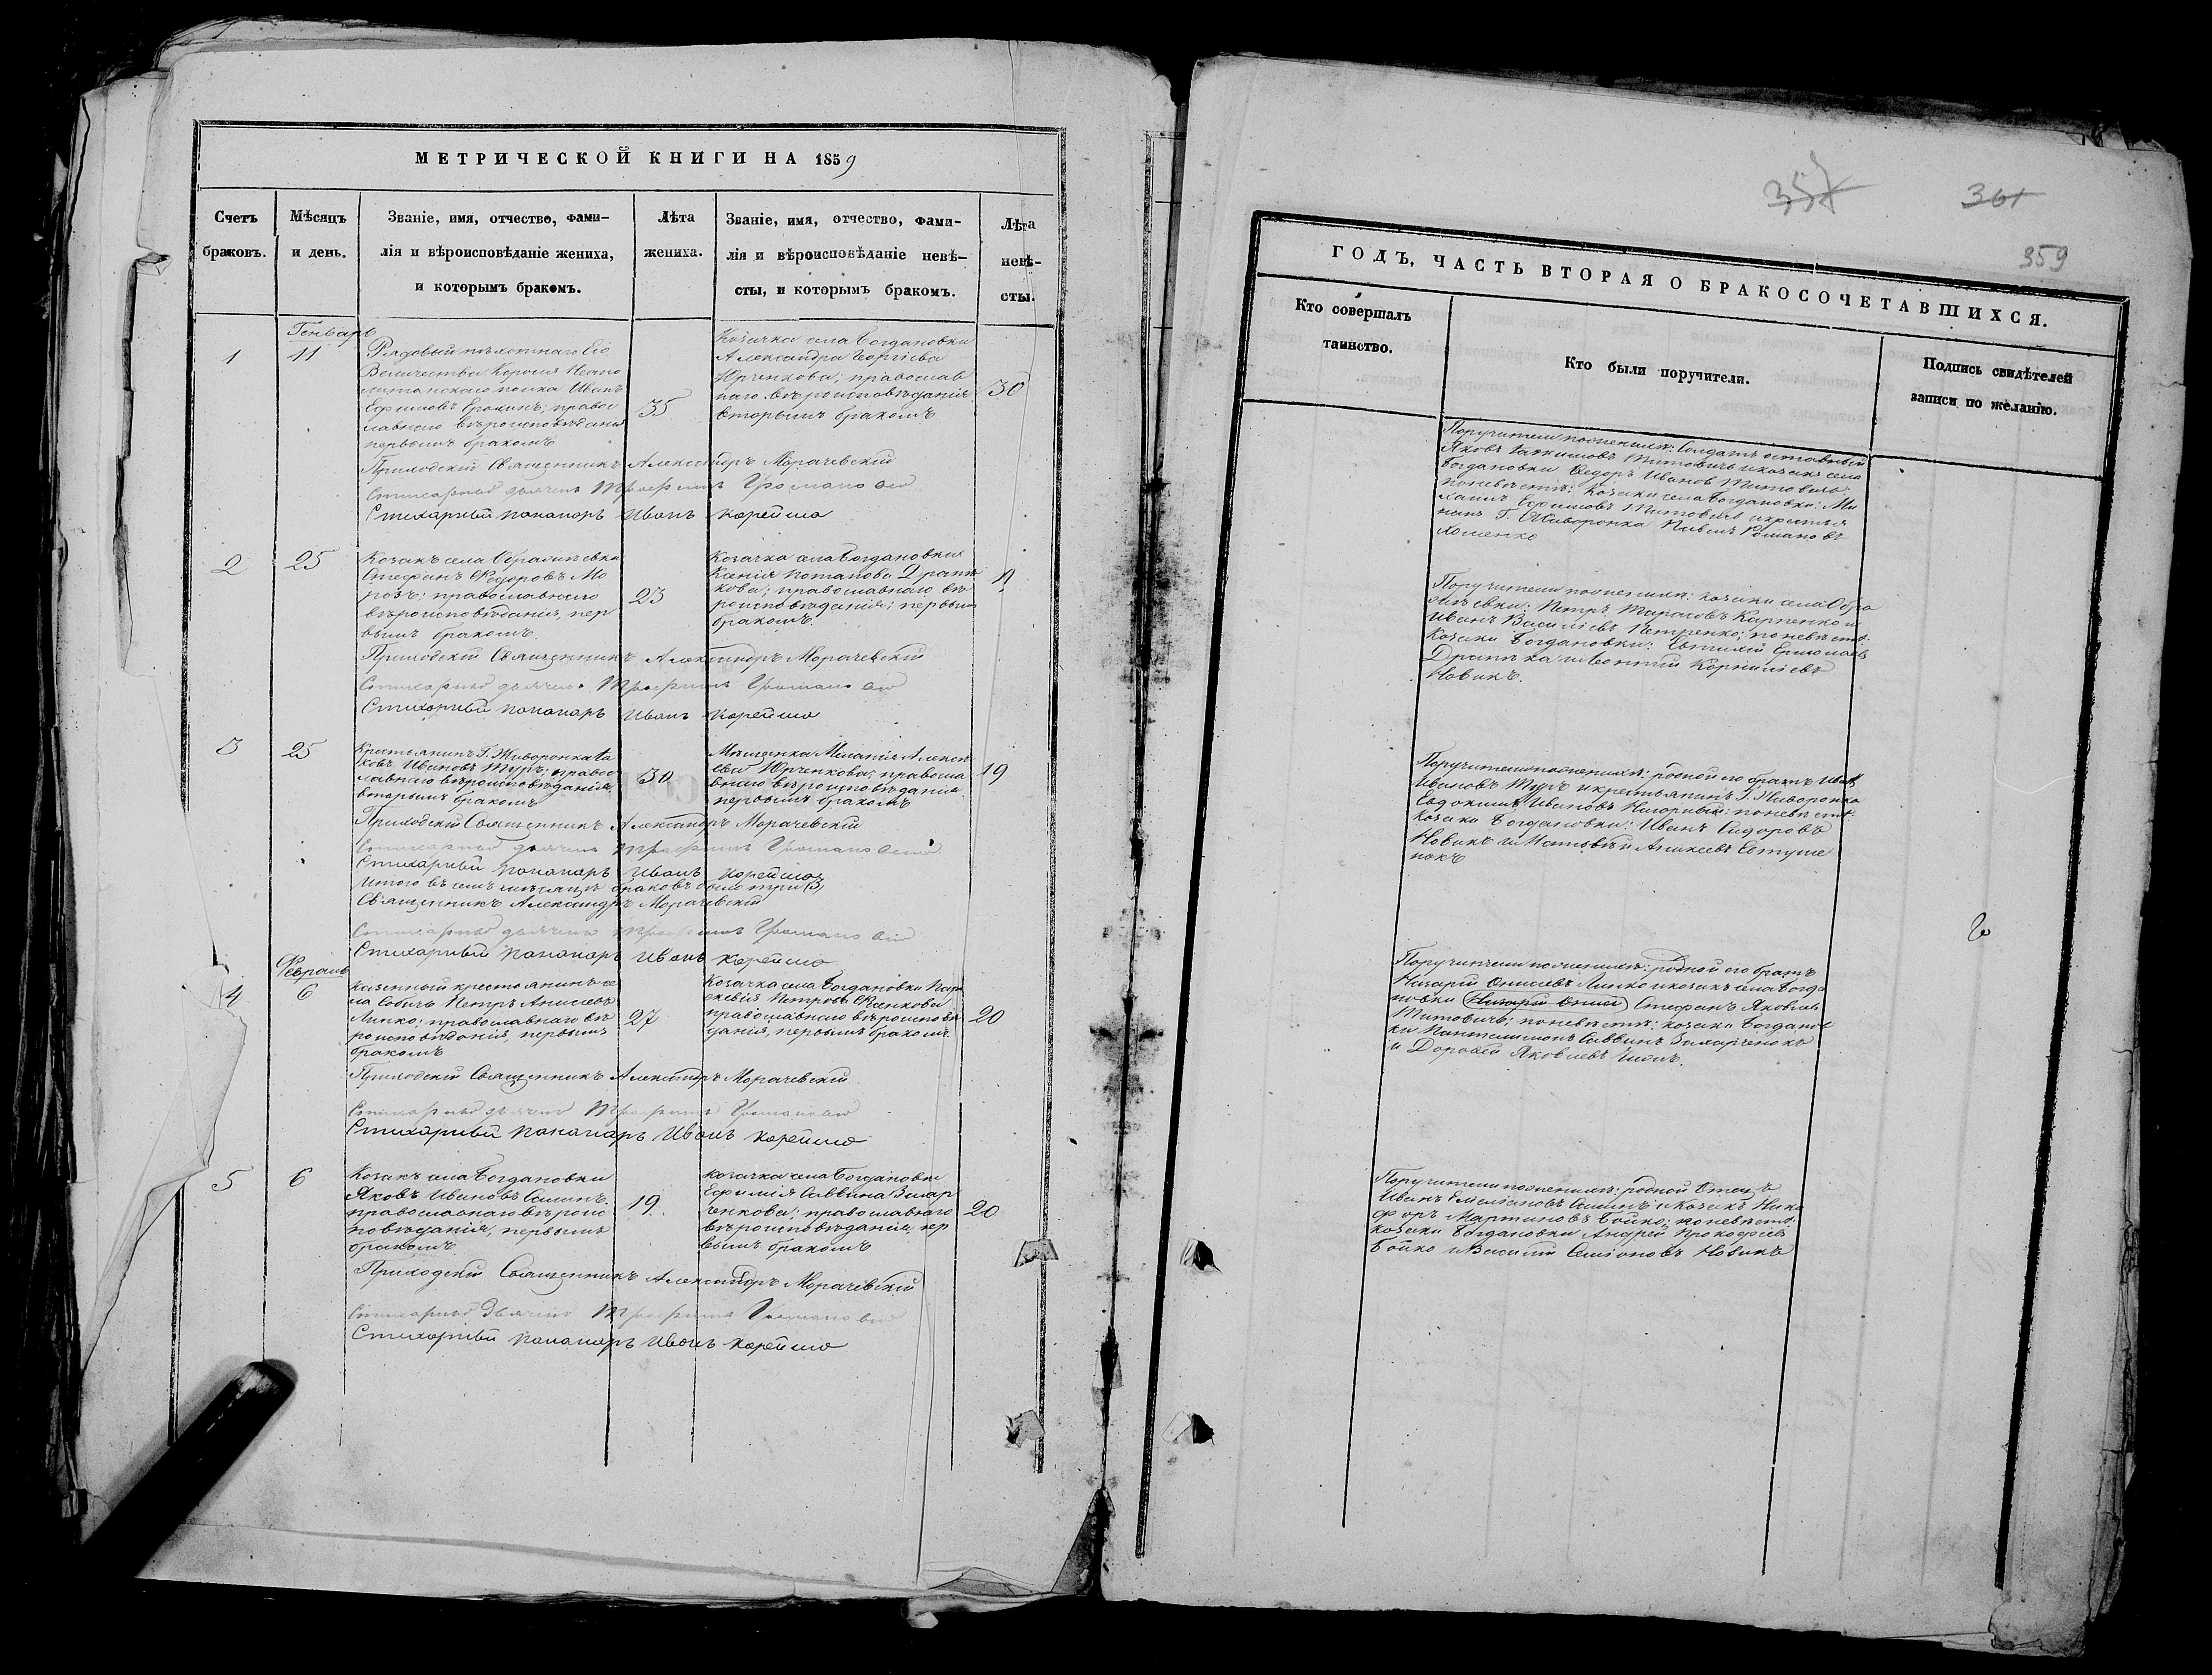 МЕТРИЧЕСКОЙ КНИГИ НА 1859
Счетъ браковъ.
Мѣсяцъ и день.
Званіе, имя, отчество, фами-
лія и вѣроисповѣданіе жениха,
и которымъ бракомъ.
Лѣта
жениха.
Званіе, имя, отчество, фами-
лія и вѣроисповѣданіе невѣ-
сты, и которымъ бракомъ.
Лѣта
невѣ-
сты.
Генварь
1
11
Рядовый пѣхотнаго Его
Величества Короля Неапо
литанскаго полка Иванъ
Ефимовъ Ероминъ; правос
лавнаго вѣроисповѣданія
первымъ бракомъ
35
Козачка села Богдановки
Александра Георгіева
Юрченкова; православ
наго вѣроисповѣданія
вторымъ бракомъ
30
Приходскій Священникъ Александръ Морачевскій
Стихарный дьячекъ Трофимъ
Стихарный пономарь Иванъ Корейшо
2
25
Козакъ села Образѣевки
Стефанъ Федоровъ Мо
розъ; православнаго
вѣроисповѣданія, пер
вымъ бракомъ.
23
Козачка села Богдановки
Ксенія Потапова Драпѣ
кова; православнаго вѣ
роисповѣданія; первымъ
бракомъ.
Приходскій Священникъ Александръ Морачевскій
Стихарный дьячекъ Трофимъ
Стихарный пономарь Иванъ Корейшо
3
25
Крестьянинъ Г. Живоронка Іа
ковъ Ивановъ Туръ; правос
лавнаго вѣроисповѣданія
вторымъ бракомъ
30
Мѣщанка Меланія Алексѣ
ева Юрченкова; правосла
внаго вѣроисповѣданія
первымъ бракомъ
19
Приходскій Священникъ Александръ Морачевскій
Стихарный дьячекъ Трофимъ
Стихарный пономарь Иванъ Корейшо
Итого въ семъ мѣсяцѣ браковъ было три (3)
Священникъ Александръ Морачевскій
Стихарный дьячекъ Трофимъ
Стихарный пономарь Иванъ Корейшо
Февраль
4
6
Казенный крестьянинъ се
ла Собичь Петръ Анисіевъ
Линко; православнаго вѣ
роисповѣданія, первымъ
бракомъ
27
Козачка села Богдановки Пара
скевія Петрова Фленкова
православнаго вѣроисповѣ
данія, первымъ бракомъ.
20
Приходскій Священникъ Александръ Морачевскій
Стихарный дьячекъ Трофимъ
Стихарный пономарь Иванъ Корейшо
5
6
Козакъ села Богдановки
Яковъ Ивановъ Саминъ
православнаго вѣроис
повѣданія, первымъ
бракомъ
19
Козачка села Богдановки
Ефимія Саввина Захар
ченкова; православнаго
вѣроисповѣданія, пер
вымъ бракомъ
20
Приходскій Священникъ Александръ Морачевскій
Стихарный дьячекъ Трофимъ
Стихарный пономарь Иванъ Корейшо
361
359
ГОДЪ, ЧАСТЬ ВТОРАЯ О БРАКОСОЧЕТАВШИХСЯ.
Кто совершалъ
таинство.
Кто были поручители.
Подпись свидѣтелей
записи по желанію.
Поручители по женихѣ: Солдатъ отставный
Яковъ Титовичь и козакъ села
Богдановки Федоръ Ивановъ Титовичь
по невѣстѣ: козаки села Богдановки: Ми
хаилъ Ефимовъ Титовичь и крестья
нинъ Г. Живоронка Павелъ Романовъ
Хоменко
Поручители по женихѣ: козаки села Обра
зѣевки: Петръ Тарасовъ Карпенко и
Иванъ Василіевъ Петренко; по невѣстѣ:
Козаки Богдановки: Евтихій Ермолаевъ
Драпѣка и Леонтій Корниліевъ
Новикъ.
Поручители по женихѣ: родной его братъ Иванъ
Ивановъ Туръ и крестьянинъ Г. Живоронка
Евдокимъ Ивановъ Нагорный; по невѣстѣ:
Козаки Богдановки: Иванъ Сидоровъ
Новикъ и Матвѣй Алексеевъ Евтуше
нокъ
Поручители по женихѣ: родной его братъ
Назарій Онисіевъ Линко и козакъ села Богда
новки (Назарій Онисі) Стефанъ Яковлевъ
Титовичь; по невѣстѣ: козаки Богданов
ки Пантелимонъ Саввинъ Захарченокъ
и Дорофей Яковлевъ
Поручители по женихѣ: родной Отецъ
Иванъ Емельяновъ Саминъ и козакъ Ники
форъ Мартиновъ Бойко; по невѣстѣ:
козаки Богдановки Андрей Прокофіевъ
Бойко и Василій Семіоновъ Новикъ